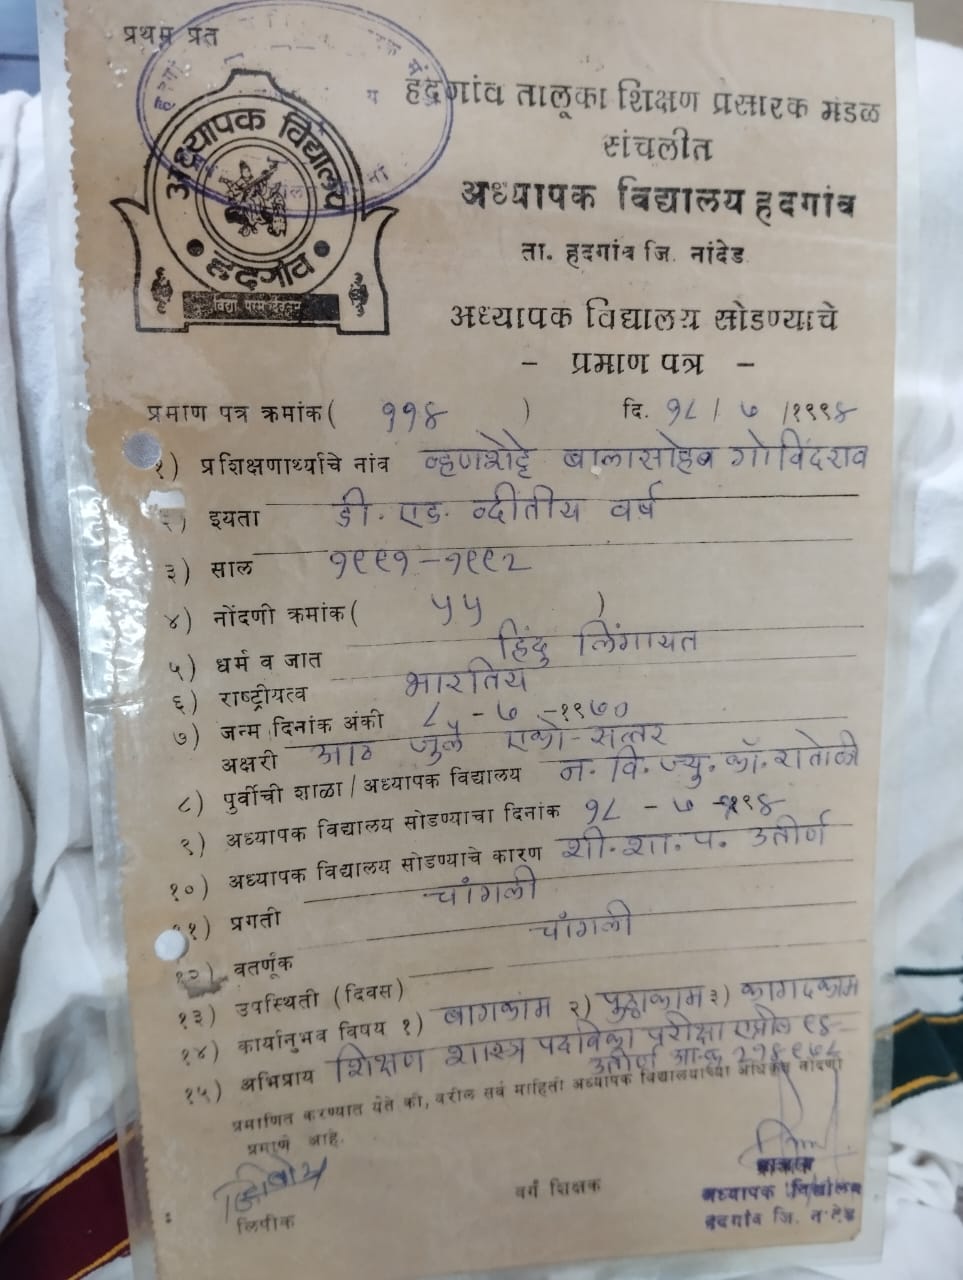 प्रथम प्रत
हदगांव तालूका शिक्षण प्रसारक मंडळ
संचलीत
अध्यापक विद्यालय हदगांव
ता. हदगांव जि. नांदेड
अध्यापक विद्यालय
हदगांव
अध्यापक विद्यालय सोडण्याचे
- प्रमाण पत्र -
प्रमाण पत्र क्रमांक ( ११४ ) दि. १८ / ७ /१९९४
१) प्रशिक्षणार्थ्याचे नांव बालासोहब गोविंदराव
इयता डी. एड. व्दीतीय वर्ष
३) साल १९९१-१९९२
४) नोंदणी क्रमांक ( ५५ )
५) धर्म व जात हिंदु लिंगायत
६) राष्ट्रीयत्व भारतिय
७) जन्म दिनांक अंकी ८ - ७ - १९७०
अक्षरी आठ जुलै एको-सत्तर
८) पुर्वीची शाळा / अध्यापक विद्यालय न. वि. ज्यु. कॉ.
९) अध्यापक विद्यालय सोडण्याचा दिनांक १८ - ७ -
१०) अध्यापक विद्यालय सोडण्याचे कारण शी. शा. प. उतीर्ण
११) प्रगती चांगली
१२) वतर्णूक चांगली
१३) उपस्थिती (दिवस)
१४) कार्यानुभव विषय १) बागकाम २) पुठ्ठाकाम ३) कागदकाम
१५) अभिप्राय शिक्षण शास्त्र पदविका परीक्षा एप्रील ९४
उतीर्ण
प्रमाणित करण्यात येते की, वरील सर्व माहिती अध्यापक विद्यालयाच्या नोंदणी
प्रमाणे आहे.
लिपीक
वर्ग शिक्षक
अध्यापक विद्यालय
हदगांव जि. नांदेड